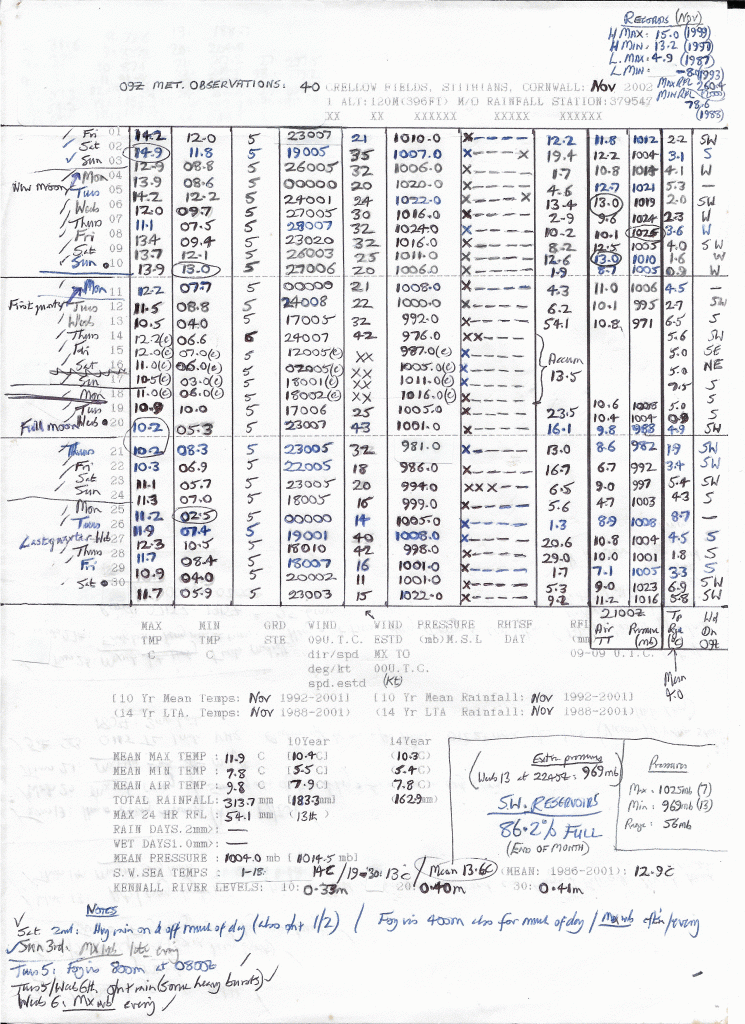 RECORDS (NOV)
H MAX: 15.0 (1999)
H MIN: 13.2 (1997)
L. MAX: 4.9 (1987)
L MIN: (1993)
MAX RFL 260.4
MIN RFL
78.6
(1988)
09Z MET. OBSERVATIONS: 40 CRELLOW FIELDS, STITHIANS, CORNWALL: NOV 2002
ALT:120M(396FT) M/O RAINFALL STATION:379547
XX XX XXXXXX XXXXX XXXXXX
Fri 01 14.2 12.0 5 23007 21 1010.0 x---- 12.2 11.8 1012 2.2 SW
Sat 02 14.9 11.8 5 19005 35 1007.0 x---x 19.4 12.2 1004 3.1 S
Sun 03 12.9 08.8 5 26005 32 1006.0 x---- 1.7 10.8 1014 4.1 W
Mon 04 13.9 08.6 5 00000 20 1020.0 x---- 4.6 12.7 1021 5.3 —
New moon Tues 05 14.2 12.2 5 24001 24 1022.0 x---x 13.4 13.0 1019 2.0 SW
Weds 06 12.0 09.7 5 27005 30 1016.0 x---- 2.9 9.6 1024 2.3 W
Thurs 07 11.1 07.5 5 28007 32 1024.0 x---- 10.2 10.1 1025 3.6 W
Fri 08 13.4 09.4 5 23020 32 1016.0 x---- 8.2 12.5 1005 4.0 SW
Sat 09 13.7 12.1 5 26003 25 1011.0 x---- 12.6 13.0 1010 1.6 W
Sun 10 13.9 13.0 5 27006 20 1006.0 x---- 1.9 8.7 1005 0.9 W
Mon 11 12.2 07.7 5 00000 21 1008.0 x---- 4.3 11.0 1006 4.5 —
First quarter Tues 12 11.5 08.8 5 24008 22 1000.0 x---- 6.2 10.1 995 2.7 SW
Weds 13 10.5 04.0 5 17005 32 992.0 x---- 54.1 10.8 971 6.5 S
Thurs 14 12.2(e) 06.6 5 24007 42 976.0 xx--- 5.6 SW
Fri 15 12.0(e) 07.0(e) 5 12005(e) XX 987.0(e) x---- Accum 5.0 SE
Sat 16 11.0(e) 06.0(e) 5 02005(e) XX 1005.0(e) x---- 13.5 5.0 NE
Sun 17 10.5(e) 03.0(e) 5 18001(e) XX 1011.0(e) x---- 7.5 S
Mon 18 11.0(e) 06.0(e) 5 18002(e) XX 1016.0(e) x---- 5.0 S
Tues 19 10.9 10.0 5 17006 25 1005.0 x---- 23.5 10.6 1008 S
Full moon Weds 20 10.2 05.3 5 23007 43 1001.0 x---- 16.1 9.8 988 4.9 SW
Thurs 21 10.2 08.3 5 23005 32 981.0 x---- 13.0 8.6 982 1.9 SW
Fri 22 10.3 06.9 5 22005 18 986.0 x---- 16.7 6.7 992 3.4 SW
Sat 23 11.1 05.7 5 23005 20 994.0 xxx-- 6.5 9.0 997 5.4 SW
Sun 24 11.3 07.0 5 18005 16 999.0 x---- 5.6 4.7 1003 4.3 S
Mon 25 11.2 02.5 5 00000 14 1005.0 x---- 1.3 8.9 1008 8.7 —
Tues 26 11.9 07.4 5 19001 40 1008.0 x---- 20.6 10.8 1004 4.5 S
Last quarter Wds 27 12.3 10.5 5 18010 42 998.0 x---- 29.0 10.0 1001 1.8 S
Thurs 28 11.7 08.4 5 18007 16 1001.0 x---- 1.7 7.1 1005 3.3 S
Fri 29 10.9 04.0 5 20002 11 1001.0 x---- 5.3 9.0 1023 6.9 SW
Sat 30 11.7 05.9 5 23003 15 1022.0 x---- 9.2 11.2 1016 5.8 SW
MAX MIN GRD WIND WIND PRESSURE RHTSF RFL
TMP TMP STE 09U.T.C. ESTD (mb)M.S.L DAY (mm
C C dir/spd MX TO 09-09 U.T.C.
deg/kt 00U.T.C.
spd.estd (kt)
2100Z
Air TT Pressure (mb) Tp Rge (°C) Wd Dn 09z
Mean 4.0
[10 Yr Mean Temps: Nov 1992-2001) [10 Yr Mean Rainfall: Nov 1992-2001)
(14 Yr LTA. Temps: Nov 1988-2001) (14 Yr LTA Rainfall: Nov 1988-2001)
10Year 14Year
MEAN MAX TEMP : 11.9 C [10.4) (10.3)
MEAN MIN TEMP : 7.8 C [5.5) (5.4)
MEAN AIR TEMP : 9.8 C [7.9) (7.8)
TOTAL RAINFALL: 313.7 mm (183.3) (162.9)
MAX 24 HR RFL : 54.1 mm (13th)
RAIN DAYS.2mm): —
WET DAYS1.0mm): —
MEAN PRESSURE : 1004.0 mb [1014.5 mb]
S.W.SEA TEMPS : 1-18: 14C / 19-30: 13°C (Mean 13.6C) (MEAN: 1986-2001): 12.9C
KENNALL RIVER LEVELS: 10: 0.33m 20: 0.40m 30: 0.41m
Extra pressure
(Weds 13 at 2245Z: 969mb)
S.W. RESERVOIRS
86.2% FULL
(END OF MONTH)
Pressures
Max: 1025mb (7)
Min: 969mb (13)
Range: 56mb
NOTES
Sat 2nd: Hvy rain on & off much of day (also ght 1/2) / Fog vis 400m also for much of day / Mx wb /every
Sun 3rd. Mx wb late evng
Tues 5: Fog vis 800m at 0800Z
Tues 5/Weds 6th. ght rain (some heavy bursts)
Weds 6: Mx wb evenig